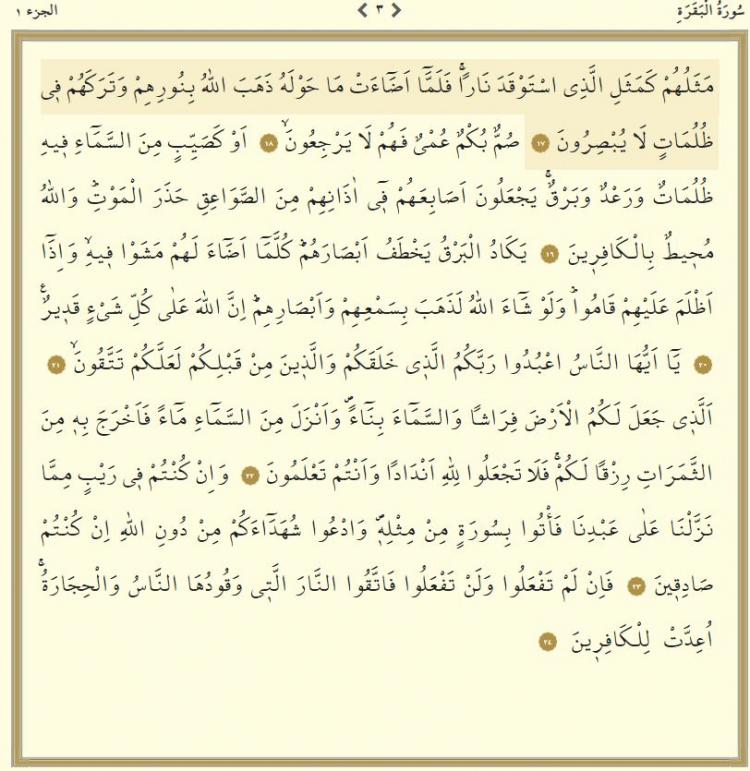 سُورَةُ الْبَقَرَةِ ٣ الجزء ١
مَثَلُهُمْ كَمَثَلِ الَّذِي اسْتَوْقَدَ نَارًاۚ فَلَمَّٓا اَضَٓاءَتْ مَا حَوْلَهُ ذَهَبَ اللهُ بِنُورِهِمْ وَتَرَكَهُمْ فٖي
ظُلُمَاتٍ لَا يُبْصِرُونَ ١٧ صُمٌّ بُكْمٌ عُمْيٌ فَهُمْ لَا يَرْجِعُونَۙ ١٨ اَوْ كَصَيِّبٍ مِنَ السَّمَٓاءِ فٖيهِ
ظُلُمَاتٌ وَرَعْدٌ وَبَرْقٌۚ يَجْعَلُونَ اَصَابِعَهُمْ فٖٓي اٰذَانِهِمْ مِنَ الصَّوَاعِقِ حَذَرَ الْمَوْتِۜ وَاللهُ
مُحٖيطٌ بِالْكَافِرٖينَ ١٩ يَكَادُ الْبَرْقُ يَخْطَفُ اَبْصَارَهُمْۜ كُلَّمَٓا اَضَٓاءَ لَهُمْ مَشَوْا فٖيهِۙ وَاِذَٓا
اَظْلَمَ عَلَيْهِمْ قَامُواۜ وَلَوْ شَٓاءَ اللهُ لَذَهَبَ بِسَمْعِهِمْ وَاَبْصَارِهِمْۜ اِنَّ اللهَ عَلٰى كُلِّ شَيْءٍ قَدٖيرٌۚ
٢٠ يَٓا اَيُّهَا النَّاسُ اعْبُدُوا رَبَّكُمُ الَّذٖي خَلَقَكُمْ وَالَّذٖينَ مِنْ قَبْلِكُمْ لَعَلَّكُمْ تَتَّقُونَۙ ٢١
اَلَّذٖي جَعَلَ لَكُمُ الْاَرْضَ فِرَاشًا وَالسَّمَٓاءَ بِنَٓاءًۖ وَاَنْزَلَ مِنَ السَّمَٓاءِ مَٓاءً فَاَخْرَجَ بِهٖ مِنَ
الثَّمَرَاتِ رِزْقًا لَكُمْۚ فَلَا تَجْعَلُوا لِلهِ اَنْدَادًا وَاَنْتُمْ تَعْلَمُونَ ٢٢ وَاِنْ كُنْتُمْ فٖي رَيْبٍ مِمَّا
نَزَّلْنَا عَلٰى عَبْدِنَا فَأْتُوا بِسُورَةٍ مِنْ مِثْلِهٖۖ وَادْعُوا شُهَدَٓاءَكُمْ مِنْ دُونِ اللهِ اِنْ كُنْتُمْ
صَادِقٖينَ ٢٣ فَاِنْ لَمْ تَفْعَلُوا وَلَنْ تَفْعَلُوا فَاتَّقُوا النَّارَ الَّتٖي وَقُودُهَا النَّاسُ وَالْحِجَارَةُۚ
اُعِدَّتْ لِلْكَافِرٖينَ ٢٤